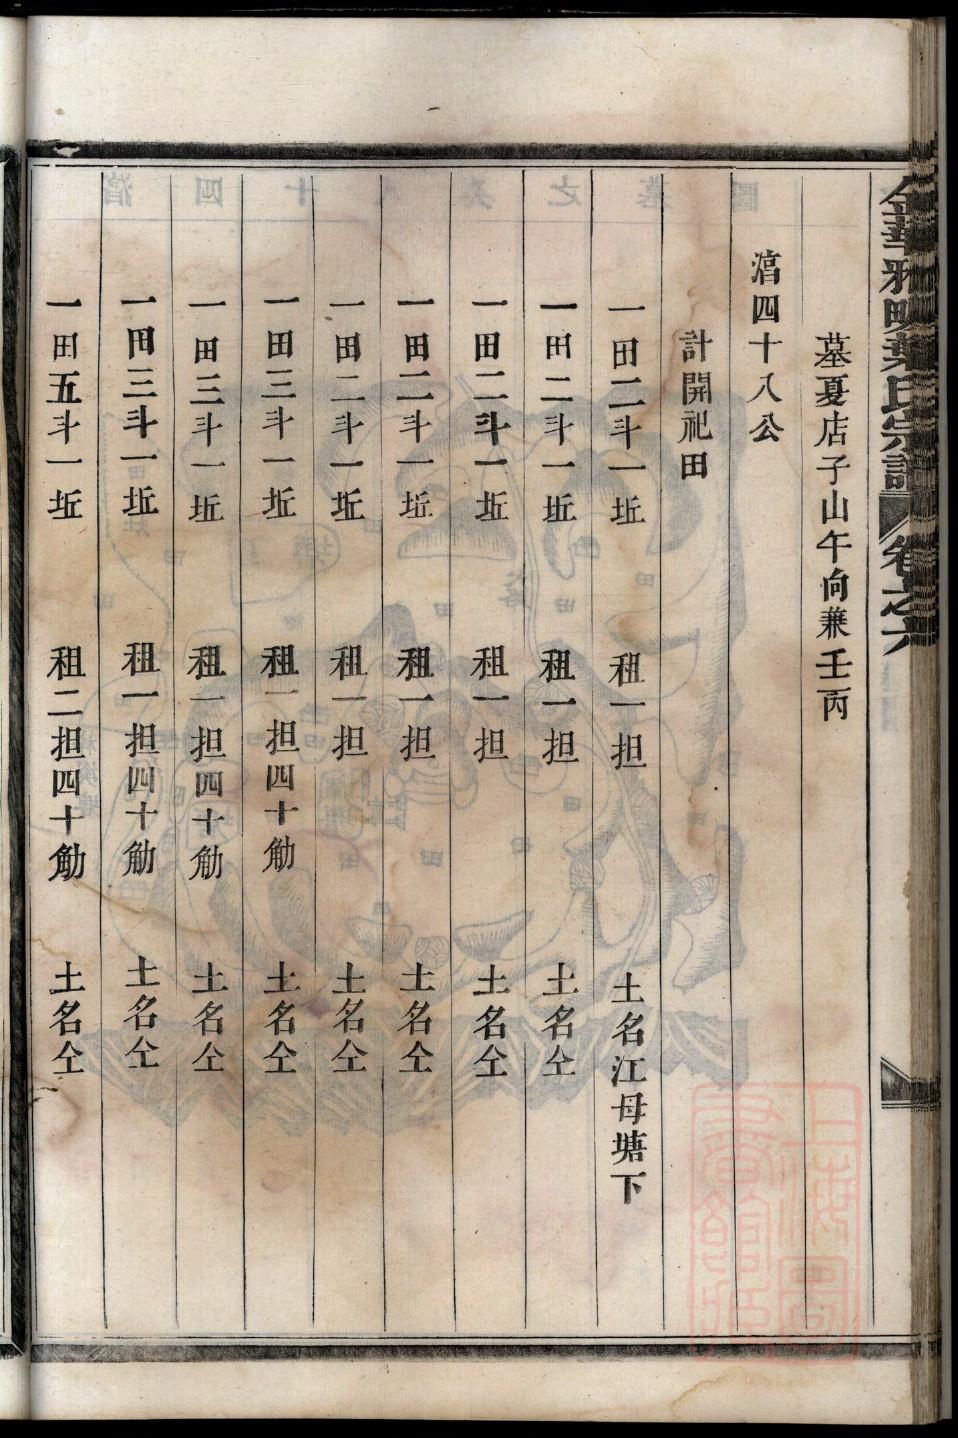 金華雅畈葉氏宗譜 卷之六
墓夏店子山午向兼壬丙
濸四十八公
計開祀田
一田二斗一坵 租一担 土名江母塘下
一田二斗一坵 租一担 土名仝
一田二斗一坵 租一担 土名仝
一田二斗一坵 租一担 土名仝
一田二斗一坵 租一担 土名仝
一田三斗一坵 租一担四十觔 土名仝
一田三斗一坵 租一担四十觔 土名仝
一田三斗一坵 租一担四十觔 土名仝
一田五斗一坵 租二担四十觔 土名仝
上海圖書館藏